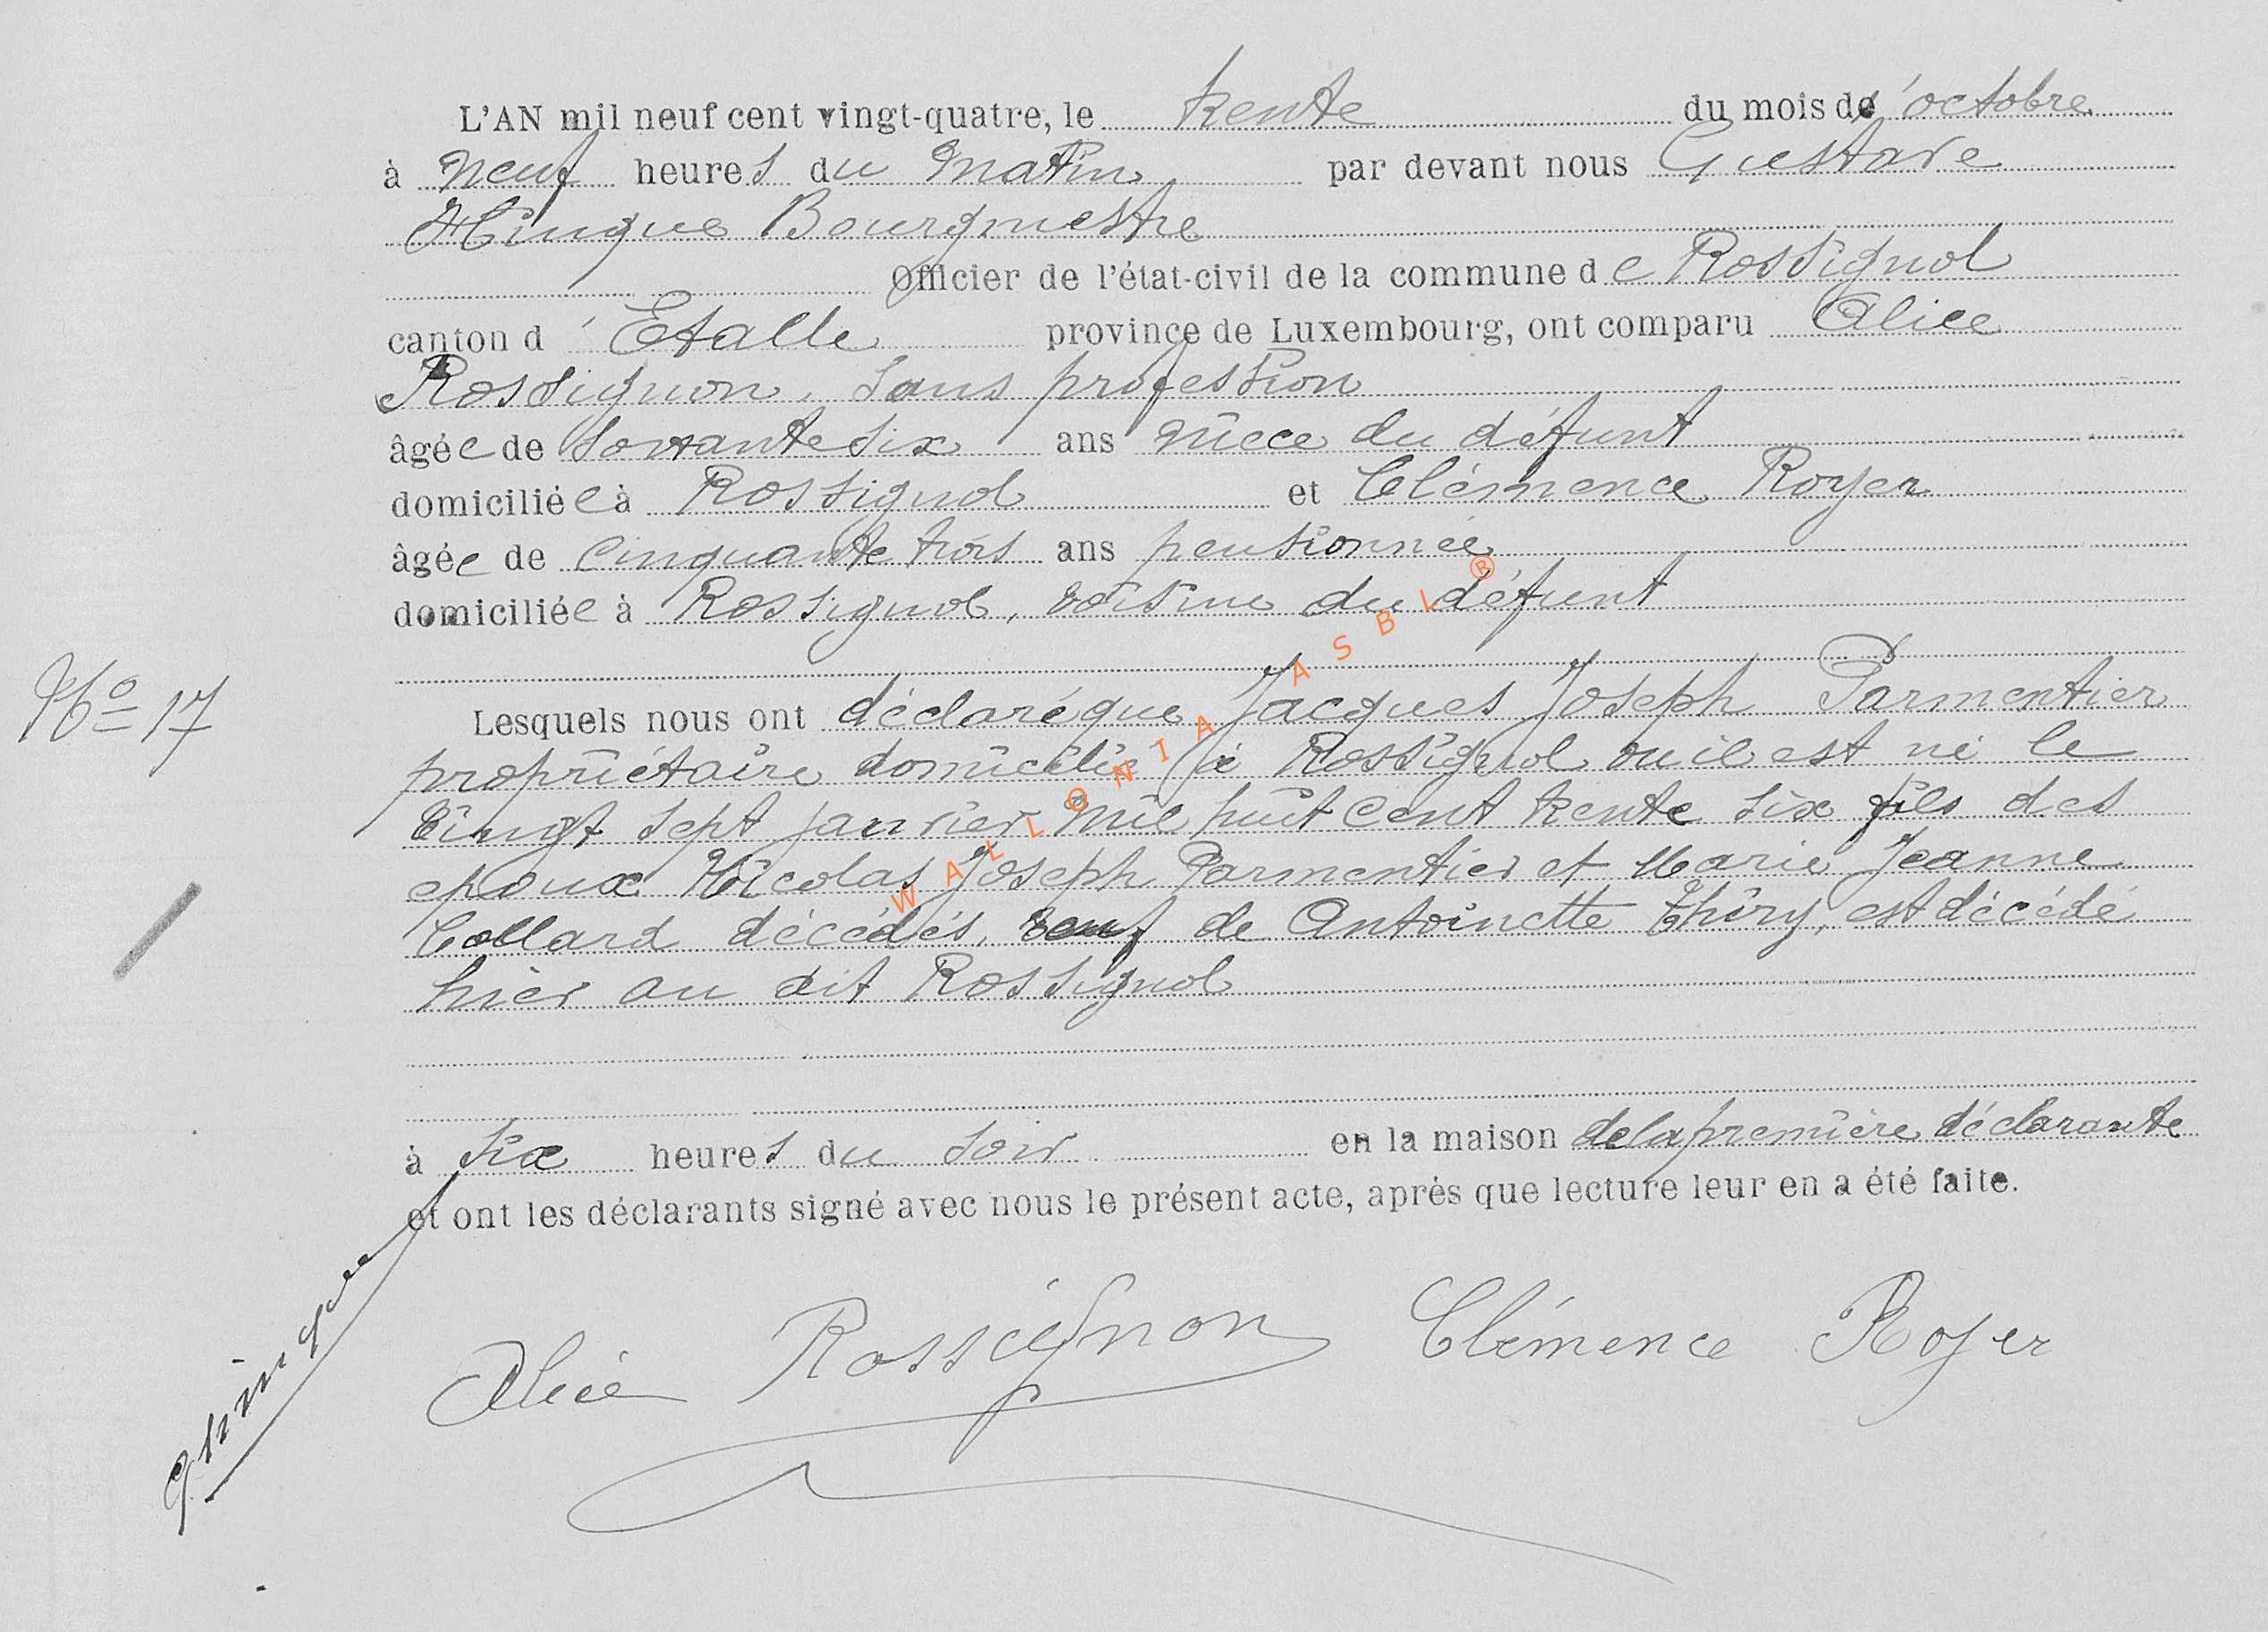 L'AN mil neuf cent vingt-quatre, le trente du mois d'octobre
à neuf heures du matin par devant nous Gustave
Hinque Bourgmestre
Officier de l'état-civil de la commune de Rossignol
canton d'Etalle province de Luxembourg, ont comparu Alice
Rossignon, sans profession
âgée de soixante six ans nièce du défunt
domiciliée à Rossignol et Clémence Royer
âgée de cinquante trois ans pensionnée
domiciliée à Rossignol, voisine du défunt
No 17
Lesquels nous ont déclaré que Jacques Joseph Parmentier
propriétaire domicilié à Rossignol ou il est né le
vingt sept janvier mil huit cent trente six fils des
epoux Nicolas Joseph Parmentier et Marie Jeanne
Collard décédés, veuf de Antoinette Thiry, est décédé
hier au dit Rossignol
à six heures du soir en la maison de la première déclarante
et ont les déclarants signé avec nous le présent acte, après que lecture leur en a été faite.
Ghinque
Alice Rossignon Clémence Royer
WALLONIA ASBL®